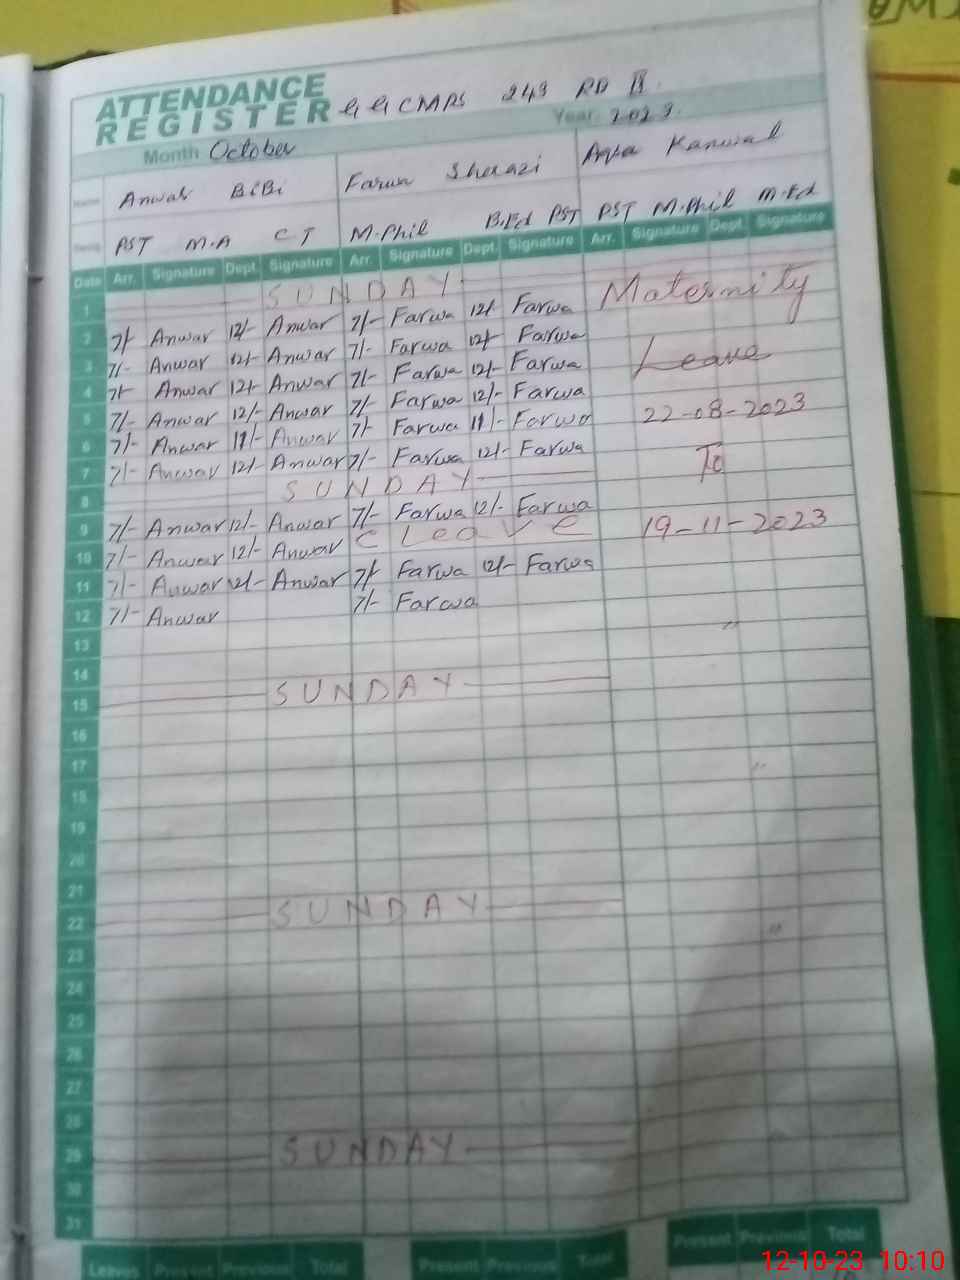 ATTENDANCE
REGISTER G G CMPS 243 RD II
Month October Year 2023
Name Anwar BiBi Farwa Sherazi Aqsa Kanwal
Desig PST M.A CT M.Phil B.Ed PST PST M.Phil M.Ed
Date Arr. Signature Dept. Signature Arr. Signature Dept. Signature Arr. Signature Dept. Signature
1 SUNDAY Maternity
2 7/- Anwar 12/- Anwar 7/- Farwa 12/- Farwa
3 7/- Anwar 12/- Anwar 7/- Farwa 12/- Farwa Leave
4 7/- Anwar 12/- Anwar 7/- Farwa 12/- Farwa
5 7/- Anwar 12/- Anwar 7/- Farwa 12/- Farwa 22-08-2023
6 7/- Anwar 11/- Anwar 7/- Farwa 11/- Farwa
7 7/- Anwar 12/- Anwar 7/- Farwa 12/- Farwa To
8 SUNDAY
9 7/- Anwar 12/- Anwar 7/- Farwa 12/- Farwa 19-11-2023
10 7/- Anwar 12/- Anwar C Leave
11 7/- Anwar 12/- Anwar 7/- Farwa 12/- Farwa
12 7/- Anwar 7/- Farwa
13
14
15 SUNDAY
16
17
18
19
20
21
22 SUNDAY
23
24
25
26
27
28
29 SUNDAY
30
31
Leaves Present Previous Total Present Previous Total Present Previous Total
12-10-23 10:10